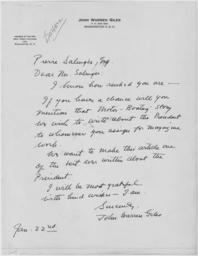 JOHN WARREN GILES
WASHINGTON
Pierre Salinger, Esq.
Dear Mr. Salinger,
I know how rushed you are —
If you have a chance will you
mention that Motor-Boating story
we wish to write about the President
to whomever you assign for magazine
work.
We want to make this article one
of the best ever written about the
President.
I will be most grateful
with kind wishes — I am
Sincerely,
John Warren Giles
Jan. 22nd